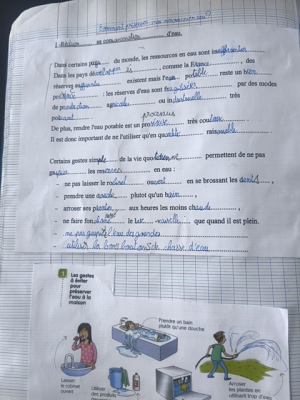 Comment préserver nos ressources eau ?
1-Réduire sa consommation d'eau.
Dans certains pays du monde, les ressources en eau sont insuffisantes
Dans les pays développés, comme la France, des
réserves existent mais l'eau potable reste un bien
: les réserves d'eau sont fragilisées par des modes
de production agricoles ou industrielle très
polluant
processus
De plus, rendre l'eau potable est un processus très couteux
Il est donc important de ne l'utiliser qu'en quantité raisonnable
Certains gestes simples de la vie quotidienne permettent de ne pas
gaspiller les ressources en eau :
- ne pas laisser le robinet ouvert en se brossant les dents,
- prendre une douche plutôt qu'un bain
- arroser ses plantes aux heures les moins chaudes,
- ne faire fonctionner le lave-vaisselle que quand il est plein.
- ne pas gaspiller l'eau
- utiliser les bons boutons de chasse d'eau
1 Les gestes
à éviter
pour
préserver
l'eau à la
maison
Prendre un bain
plutôt qu'une douche
Laisser
le robinet
ouvert
Utiliser
des produits
Arroser
les plantes en
utilisant trop d'eau